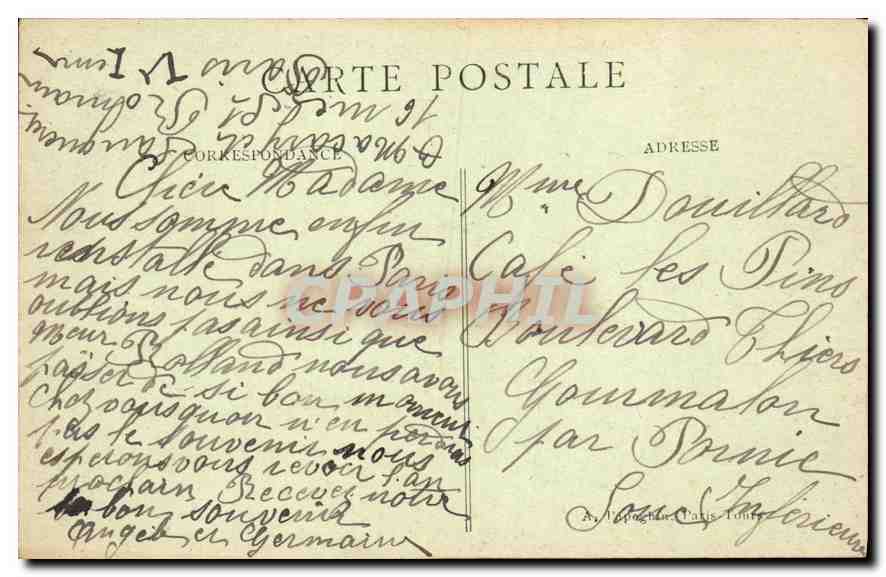 CARTE POSTALE
CORRESPONDANCE
ADRESSE
Chère Madame
Nous somme enfin
réinstallé dans Paris
mais nous ne vous
oublions pas ainsi que
Meur Rolland nous avons
passer de si bon moment
chez vous quon n'en perdras
pas le souvenir nous
esperons vous revoir l'an
prochain Recevez notre
bon souvenir
Angèle et Germaine
Mme Douillard
Café les Pins
Boulevard Thiers
Gourmalon
par Pornic
Loire Inférieure
A. Papeghin, Paris-Tours
16
Paris VIeme
CPRAPHIL